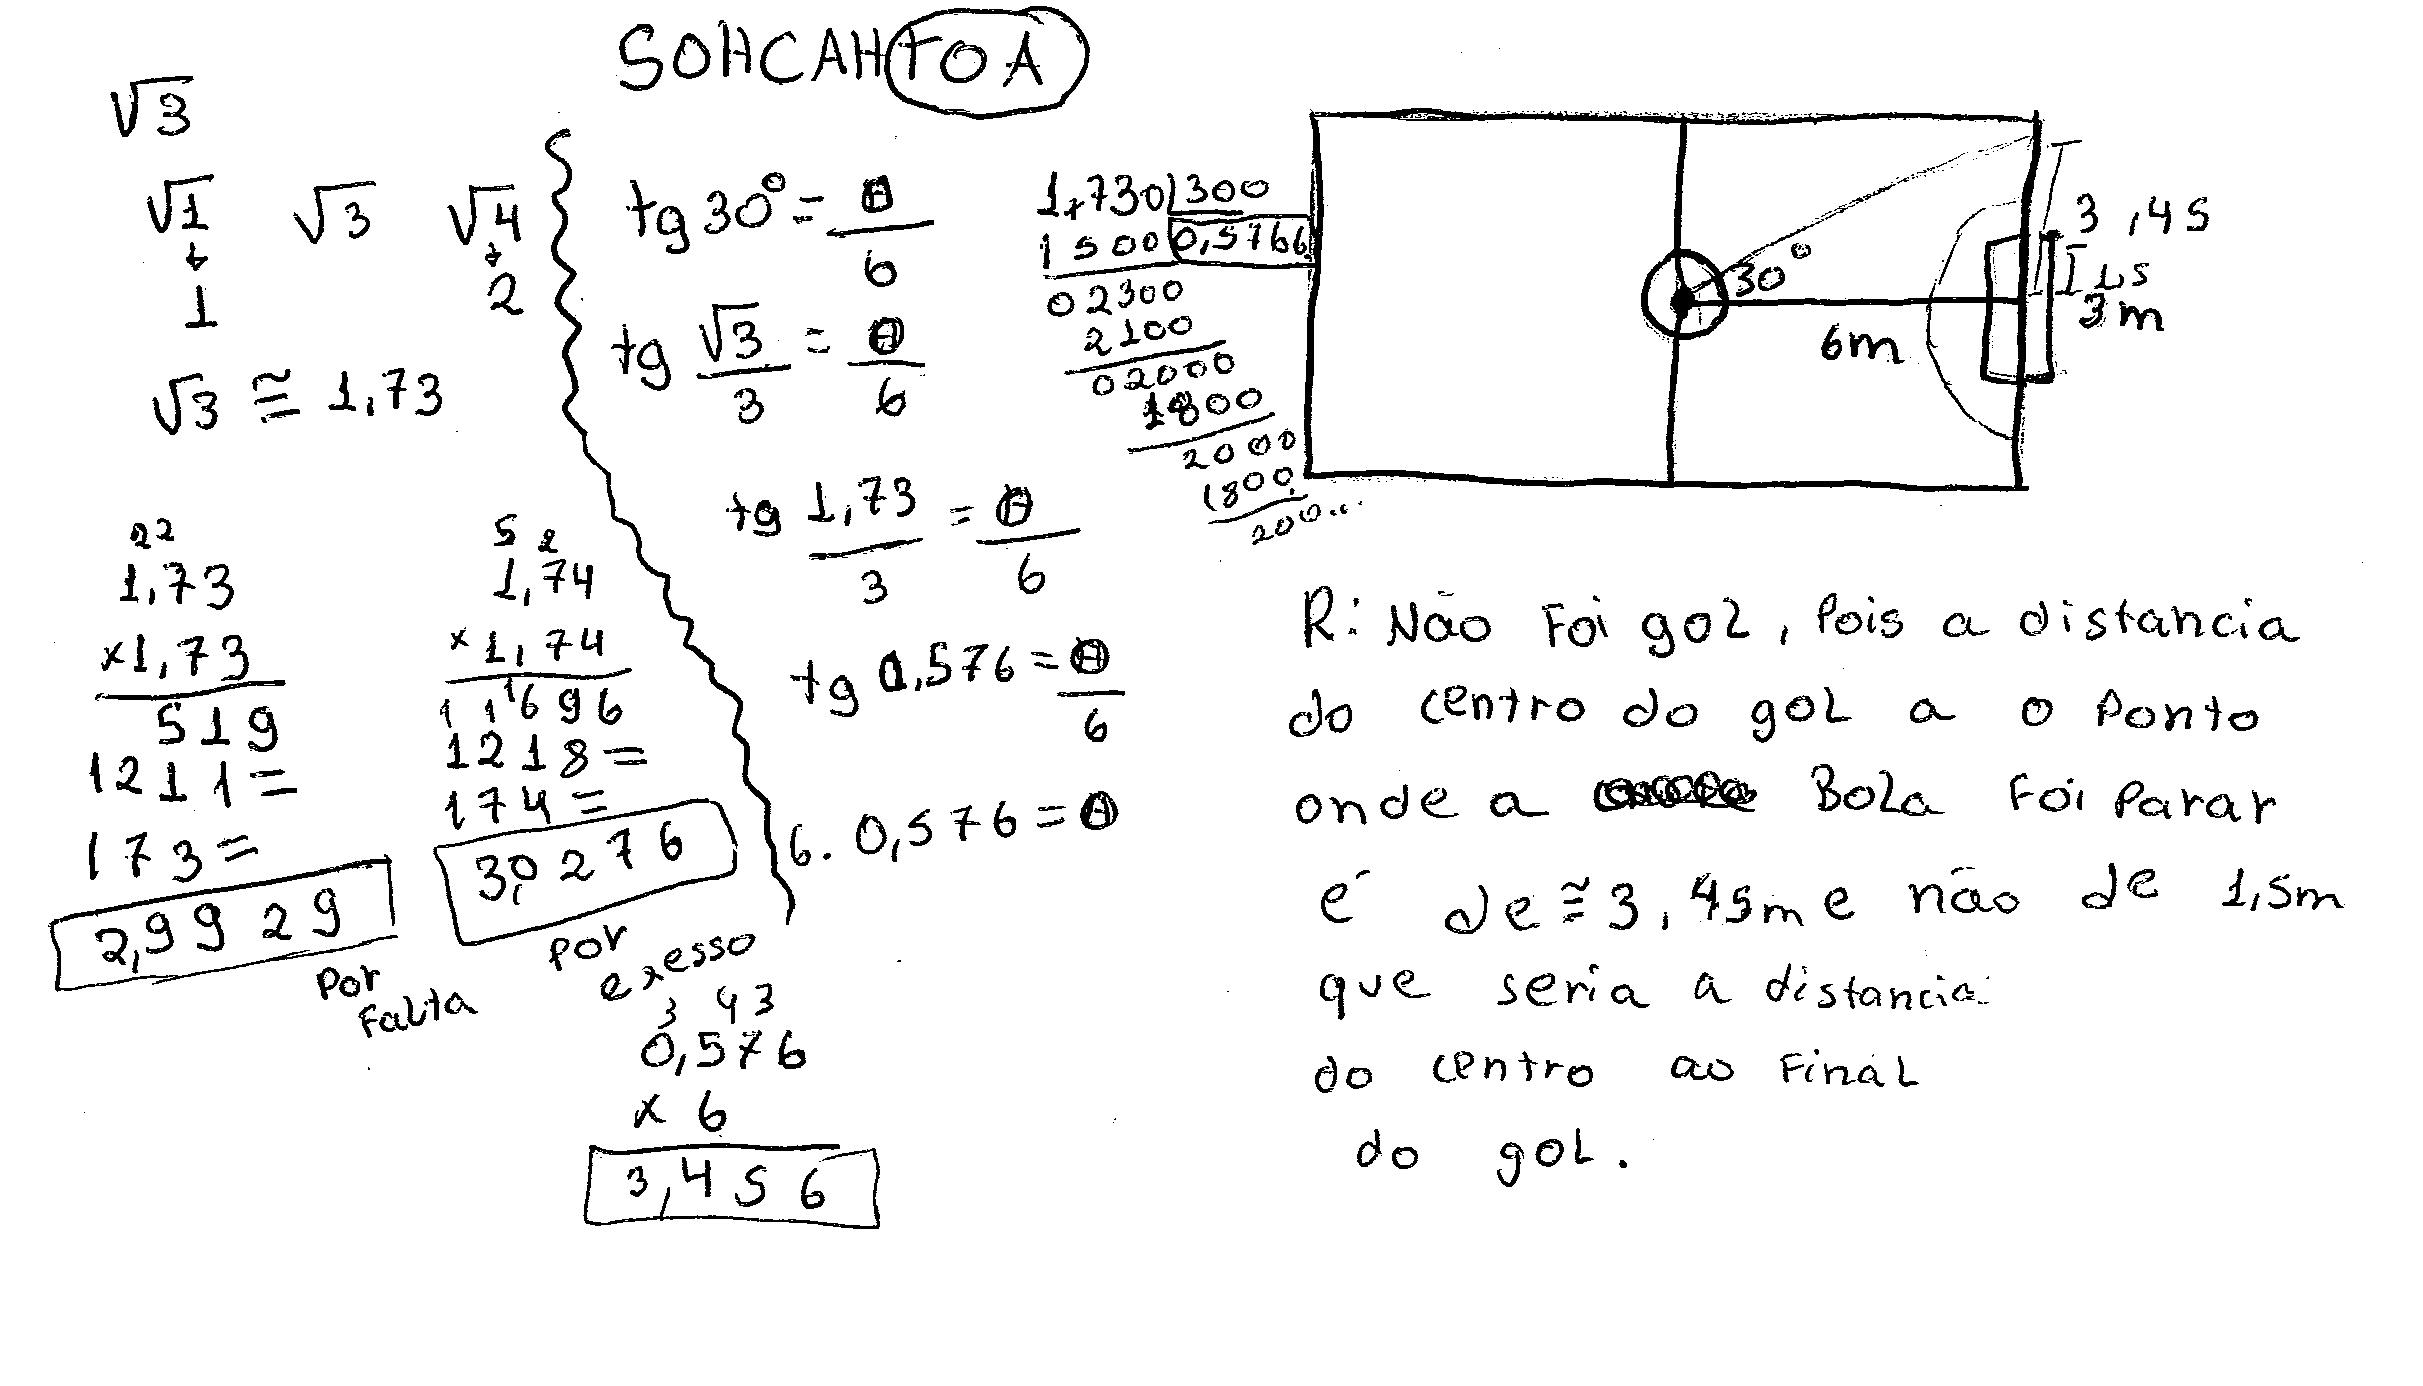 SOHCAHTOA
√3
√1 √3 √4
1 2
√3 ≅ 1,73
22
1,73
x1,73
519
1211=
173=
2,9929
Por
Falta
5 2
1,74
x1,74
11696
1218=
174=
3,0276
Por
exesso
tg 30° = θ/6
tg √3/3 = θ/6
tg 1,73/3 = θ/6
tg 0,576 = θ/6
6. 0,576 = θ
3 43
0,576
x 6
3,456
1,730 300
1500 0,5766
02300
2100
02000
1800
2000
1800
200...
30°
6m
3,45
1,5
3m
R: Não Foi gol, Pois a distancia
do centro do gol a o Ponto
onde a Bola Foi Parar
é de ≅ 3,45m e não de 1,5m
que seria a distancia
do centro ao Final
do gol.